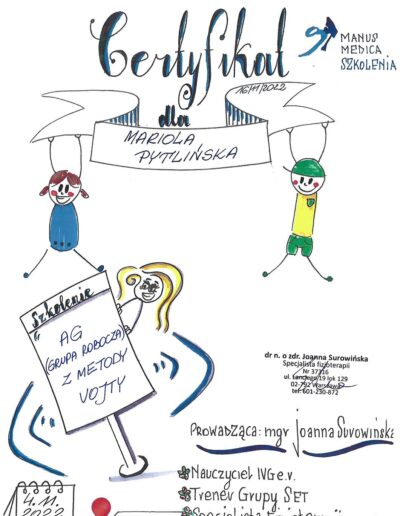 Certyfikat
MANUS
MEDICA
SZKOLENIA
16/11/2022
dla
MARIOLA
PYTLIŃSKA
Szkolenie
AG
(GRUPA ROBOCZA)
Z METODY
VOJTY
dr n. o zdr. Joanna Surowińska
Specjalista fizjoterapii
Nr 37316
ul. Landego 19 lok 129
02-792 Warszawa
tel. 601-230-872
PROWADZĄCA: mgr Joanna Surowińska
Nauczyciel IVG e.v.
Trener Grupy SET
4.11.
2022